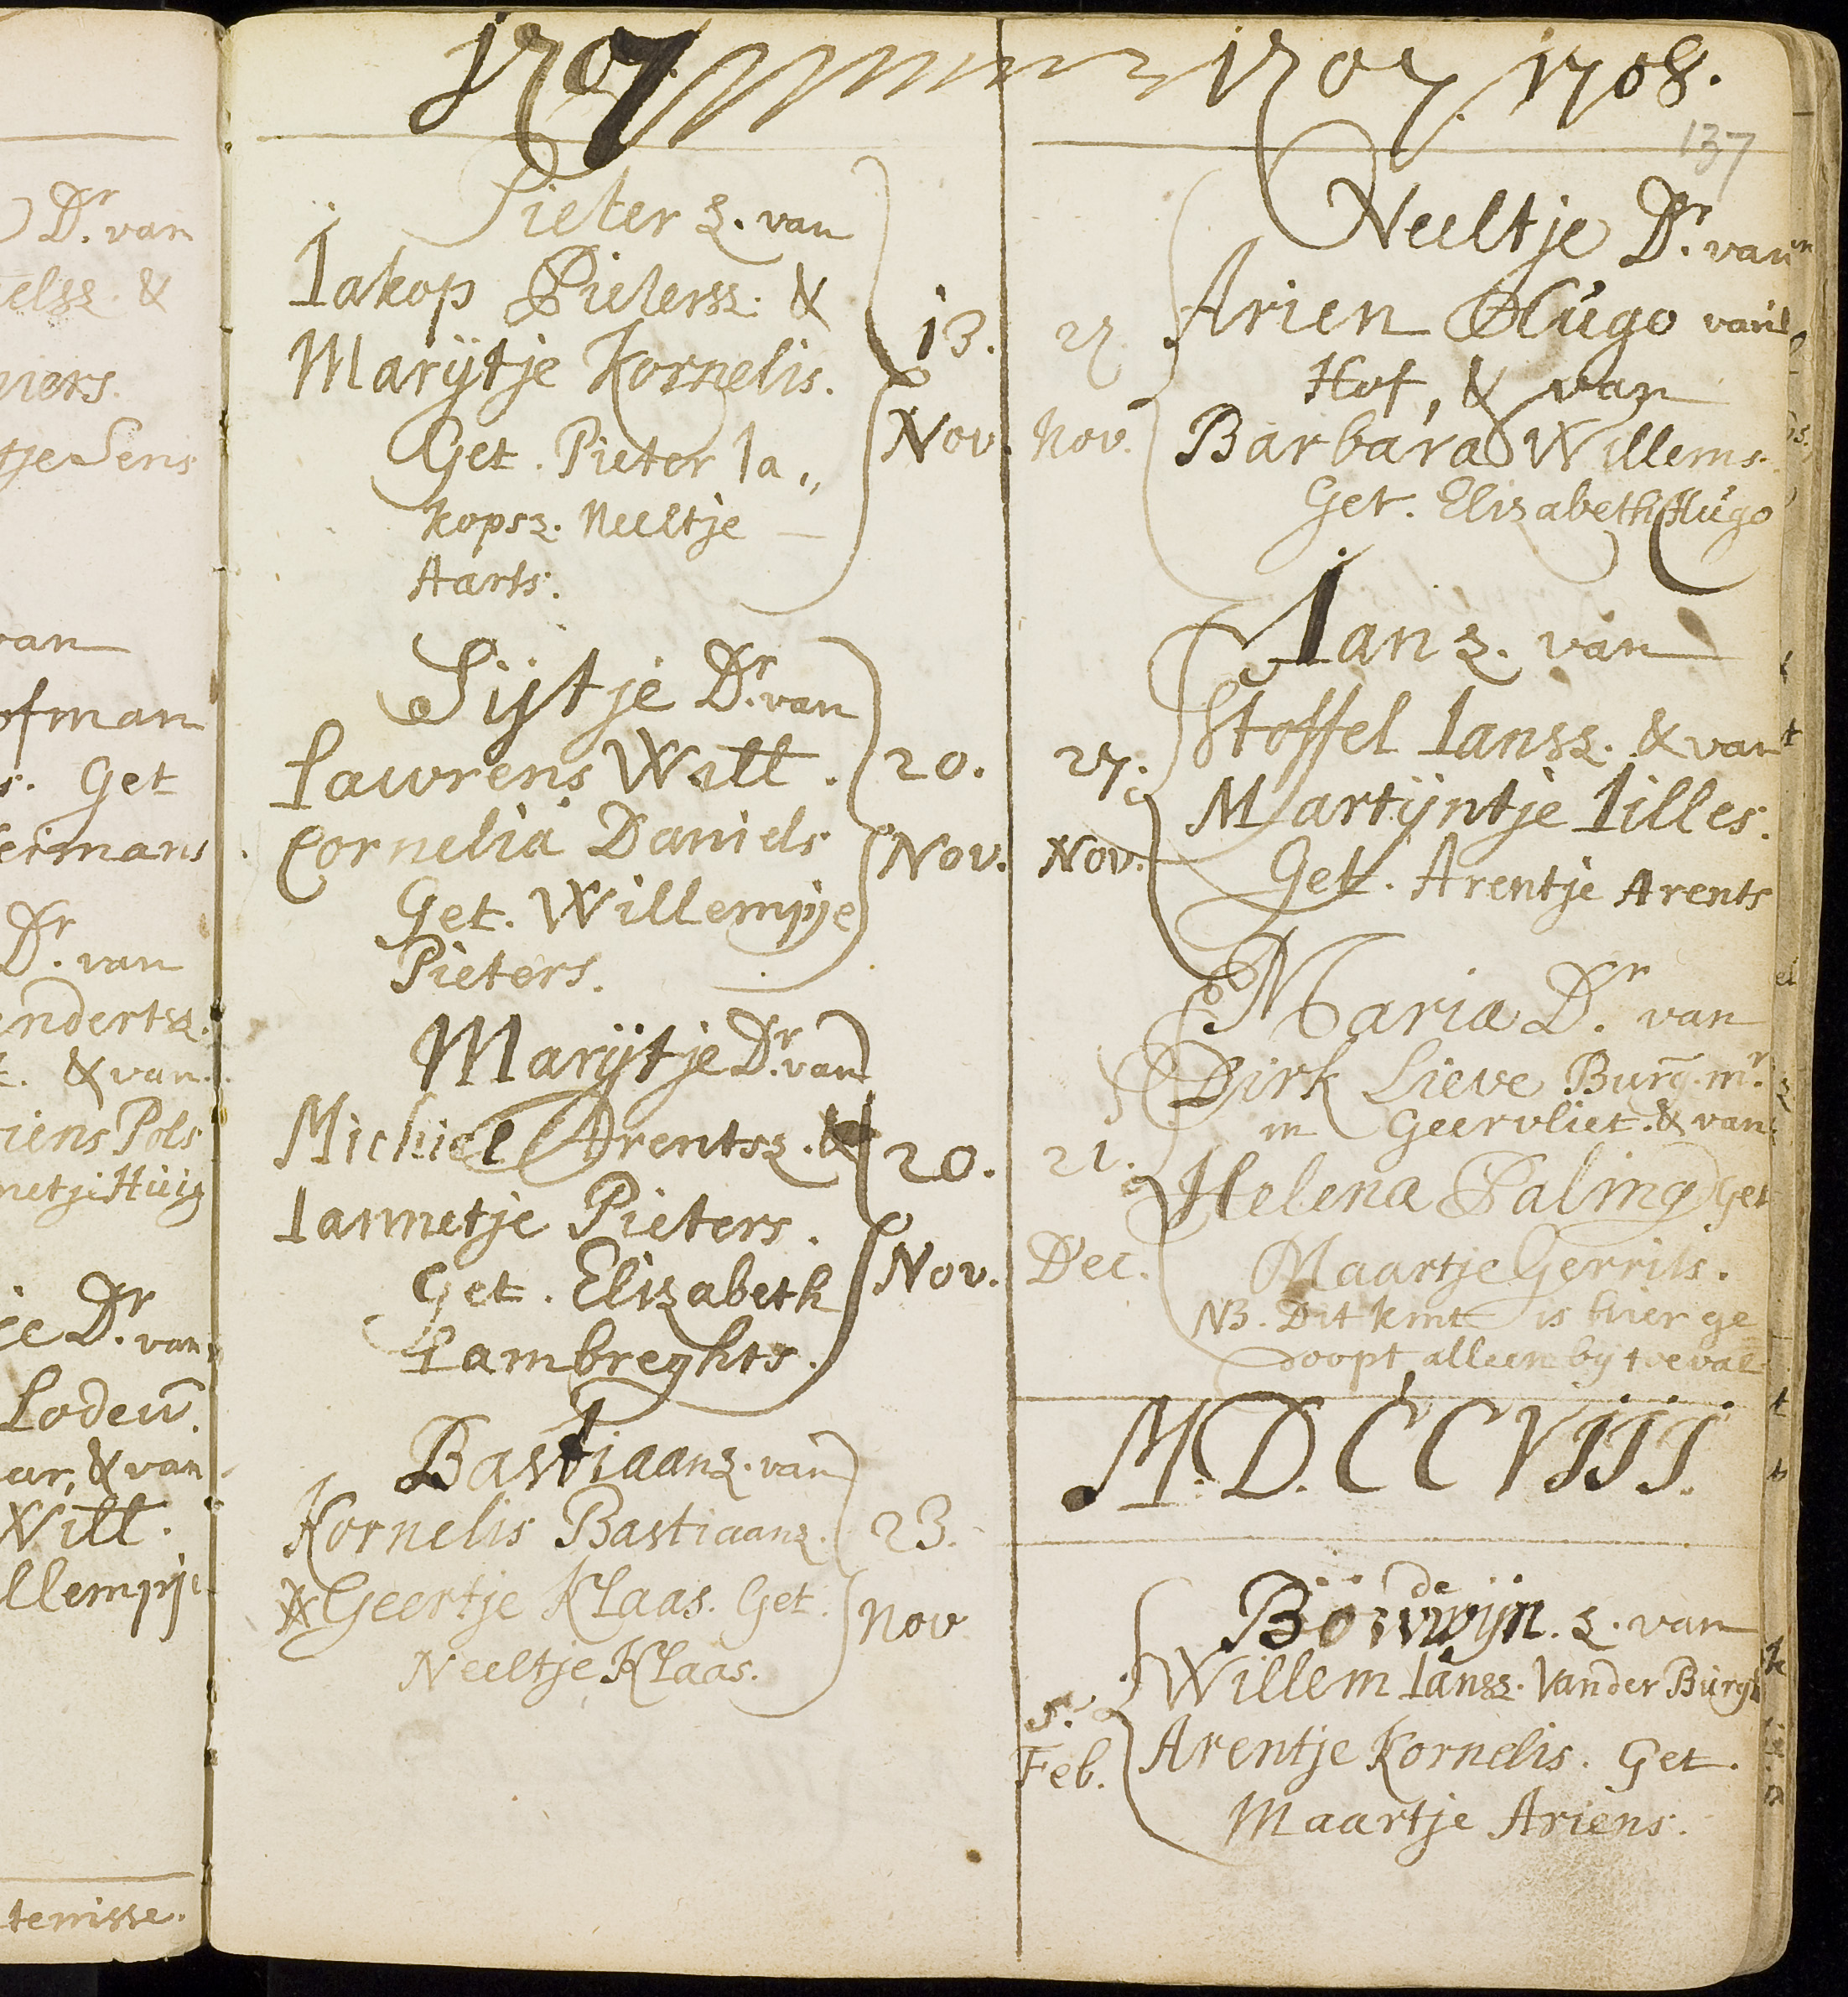 Dr. van
elsz. &
niers.
tje Sens
van
ofman
s. Get
ermans
Dr. van
endertsz.
t. & van
iens Pols
netje Huig
je Dr. van
Lodew.
ar, & van
Will.
llempje
tenisse.
1707
Pieter z. van
Iakop Pietersz. &
Marijtje Kornelis.
Get. Pieter Ia„
kopsz. Neeltje
Aarts.
13.
Nov.
Sijtje Dr. van
Lawrens Will.
Cornelia Daniels
Get. Willempje
Pieters.
20.
Nov.
Marijtje Dr. van
Michiel Arentsz. &
Iannetje Pieters.
Get. Elizabeth
Lambreghts.
20.
Nov.
Bastiaan z. van
Kornelis Bastiaanz.
& Geertje Klaas. Get.
Neeltje Klaas.
23.
Nov
1707 1708.
137
Neeltje Dr. van
Arien Hugo van
Hof, & van
Barbara Willems.
Get. Elizabeth Hugo
27
Nov.
Ian z. van
Stoffel Iansz. & van
Martijntje Iilles.
Get. Arentje Arents
27.
Nov.
Maria Dr. van
Dirk Lieve Burg.mr.
in Geervliet. & van
Helena Paling Get
Maartje Gerrits.
NB. Dit kint is hier ge
doopt, alleen bij toeval
21.
Dec.
M.D.CCVIII.
de
Bouwijn. z. van
Willem Iansz. Vander Burgh
Arentje Kornelis. Get.
Maartje Ariens.
5.
Feb.